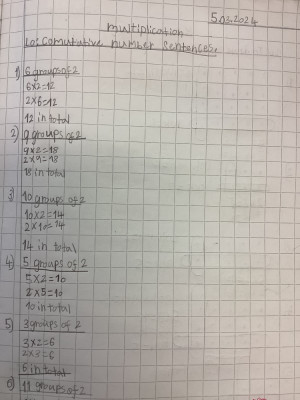 5.03.2024
multiplication
Lo: Comutative number sentences.
1) 6 groups of 2
6x2=12
2x6=12
12 in total
2) 9 groups of 2
9x2=18
2x9=18
18 in total
3) 10 groups of 2
10x2=14
2x10=14
14 in total
4) 5 groups of 2
5x2=10
2x5=10
10 in total
5) 3 groups of 2
3x2=6
2x3=6
6 in total
6) 11 groups of 2